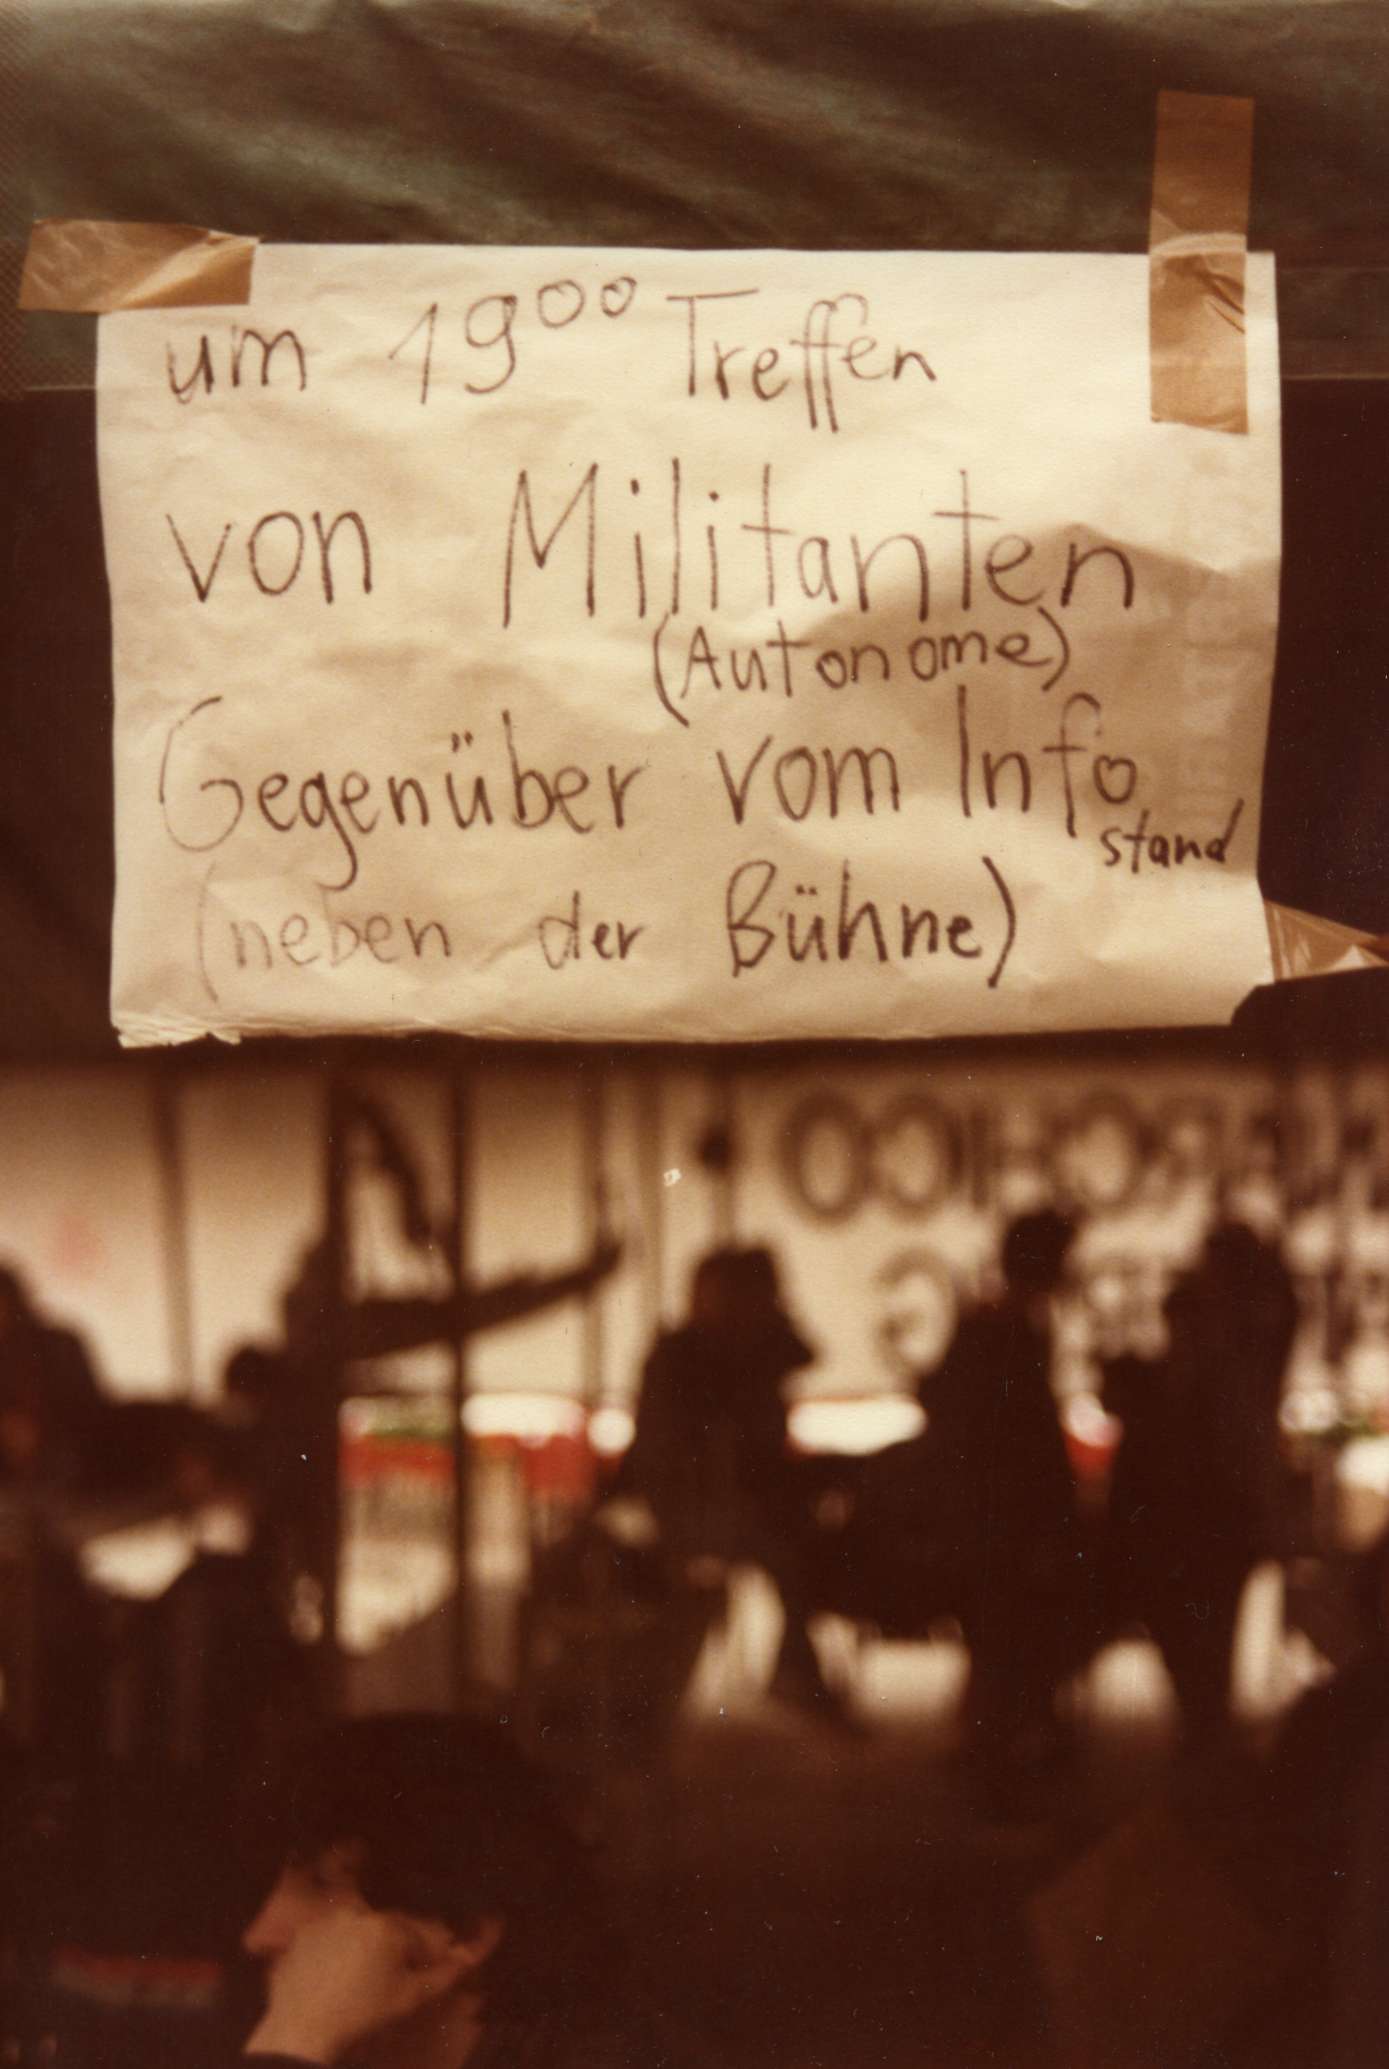 um 19⁰⁰ Treffen
von Militanten
(Autonome)
Gegenüber vom Info
stand
(neben der Bühne)